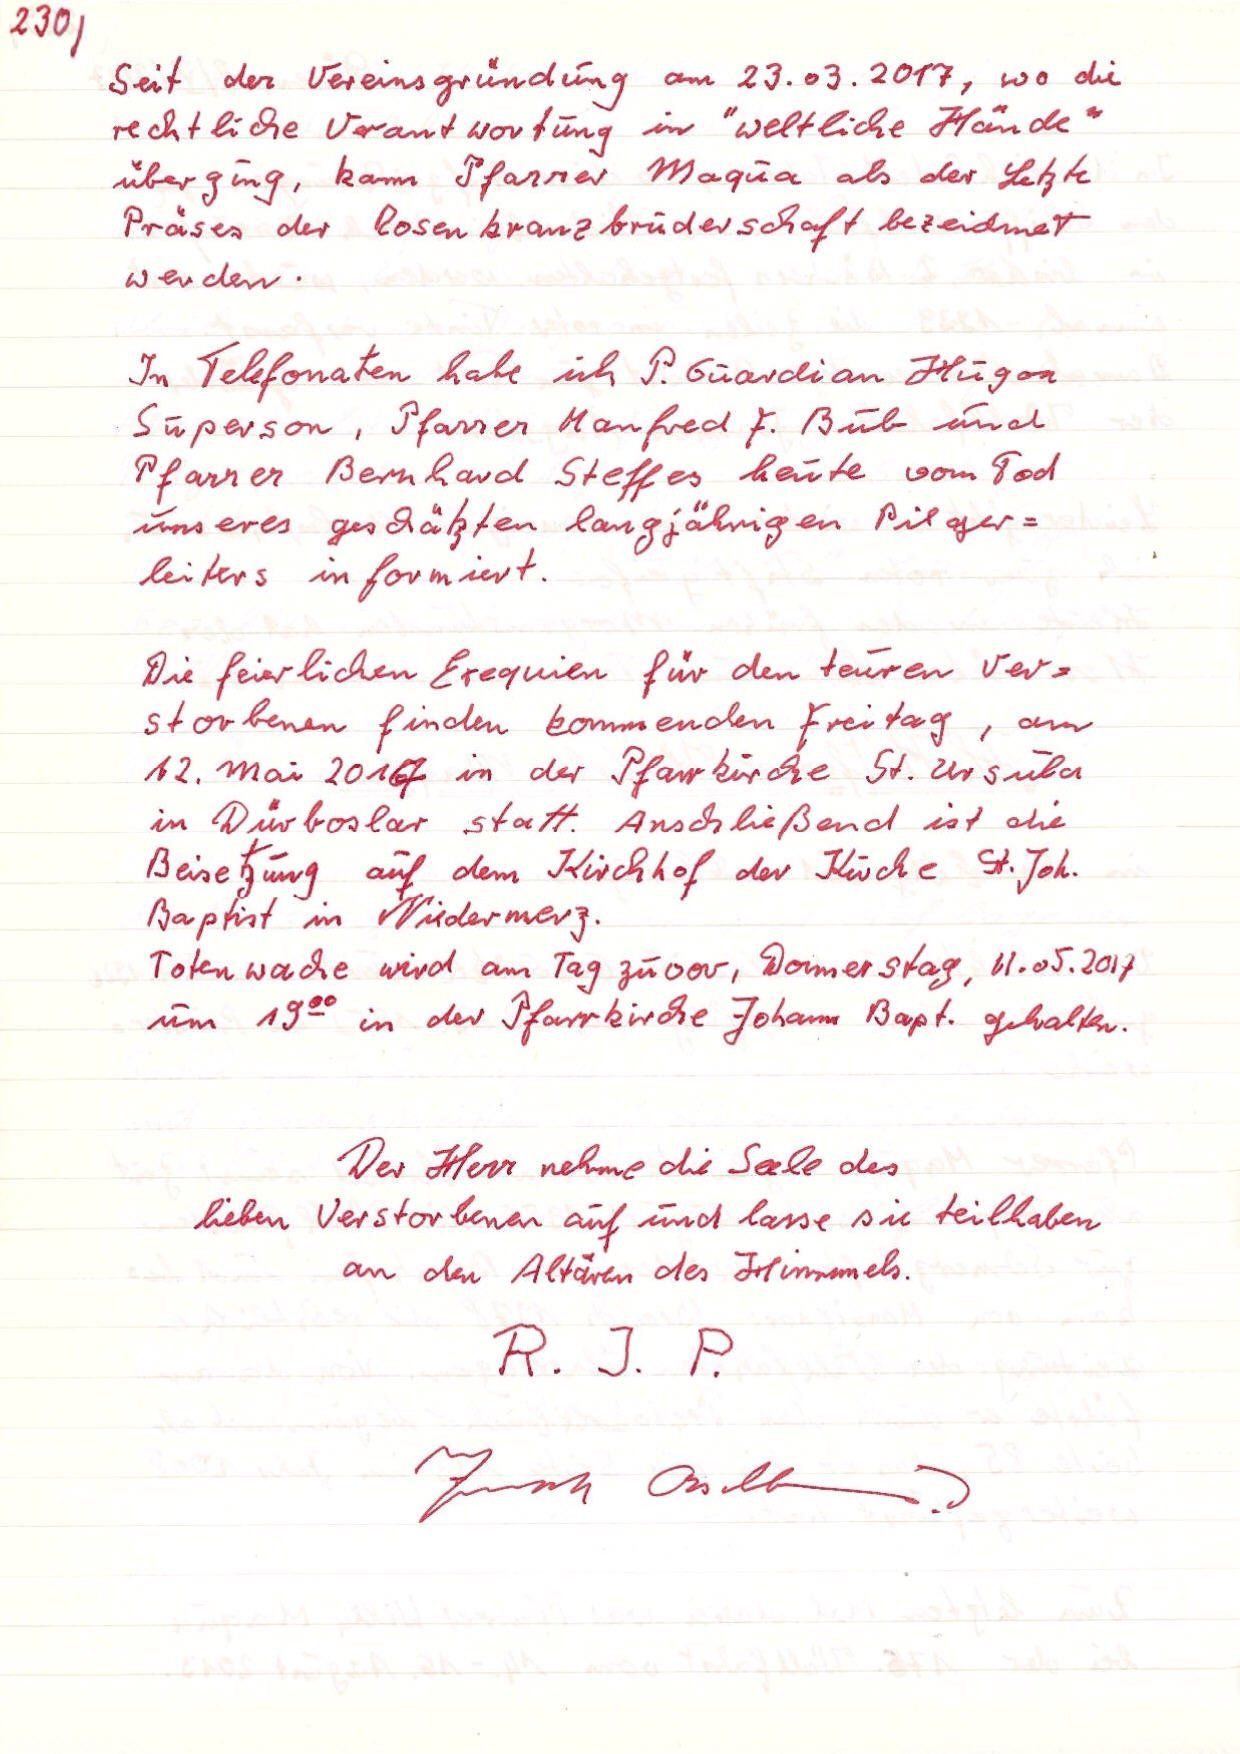 230)
Seit der Vereinsgründung am 23.03.2017, wo die
rechtliche Verantwortung in "weltliche Hände"
überging, kann Pfarrer Maqua als der Letzte
Präses der Rosenkranzbruderschaft bezeichnet
werden.
In Telefonaten habe ich P. Guardian Hugon
Superson, Pfarrer Manfred J. Bub und
Pfarrer Bernhard Steffes heute vom Tod
unseres geschätzten langjährigen Pilger=
leiters informiert.
Die feierlichen Exequien für den teuren Ver=
storbenen finden kommenden Freitag, am
12. Mai 2017 in der Pfarrkirche St. Ursula
in Dürboslar statt. Anschließend ist die
Beisetzung auf dem Kirchhof der Kirche St. Joh.
Baptist in Niedermerz.
Totenwache wird am Tag zuvor, Donnerstag, 11.05.2017
um 19⁰⁰ in der Pfarrkirche Johann Bapt. gehalten.
Der Herr nehme die Seele des
lieben Verstorbenen auf und lasse sie teilhaben
an den Altären des Himmels.
R. I. P.